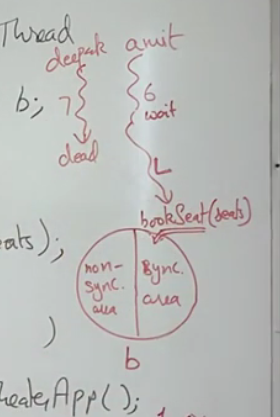 Thread
deepak amit
b; 7 6
wait
dead
L
bookSeat(seats)
eats);
non-
sync.
area
sync.
area
)
b
heaterApp();